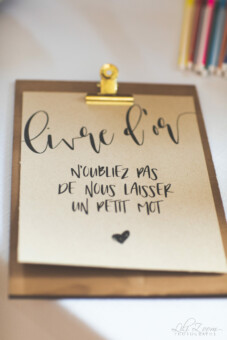 livre d'or
N'OUBLIEZ PAS
DE NOUS LAISSER
UN PETIT MOT